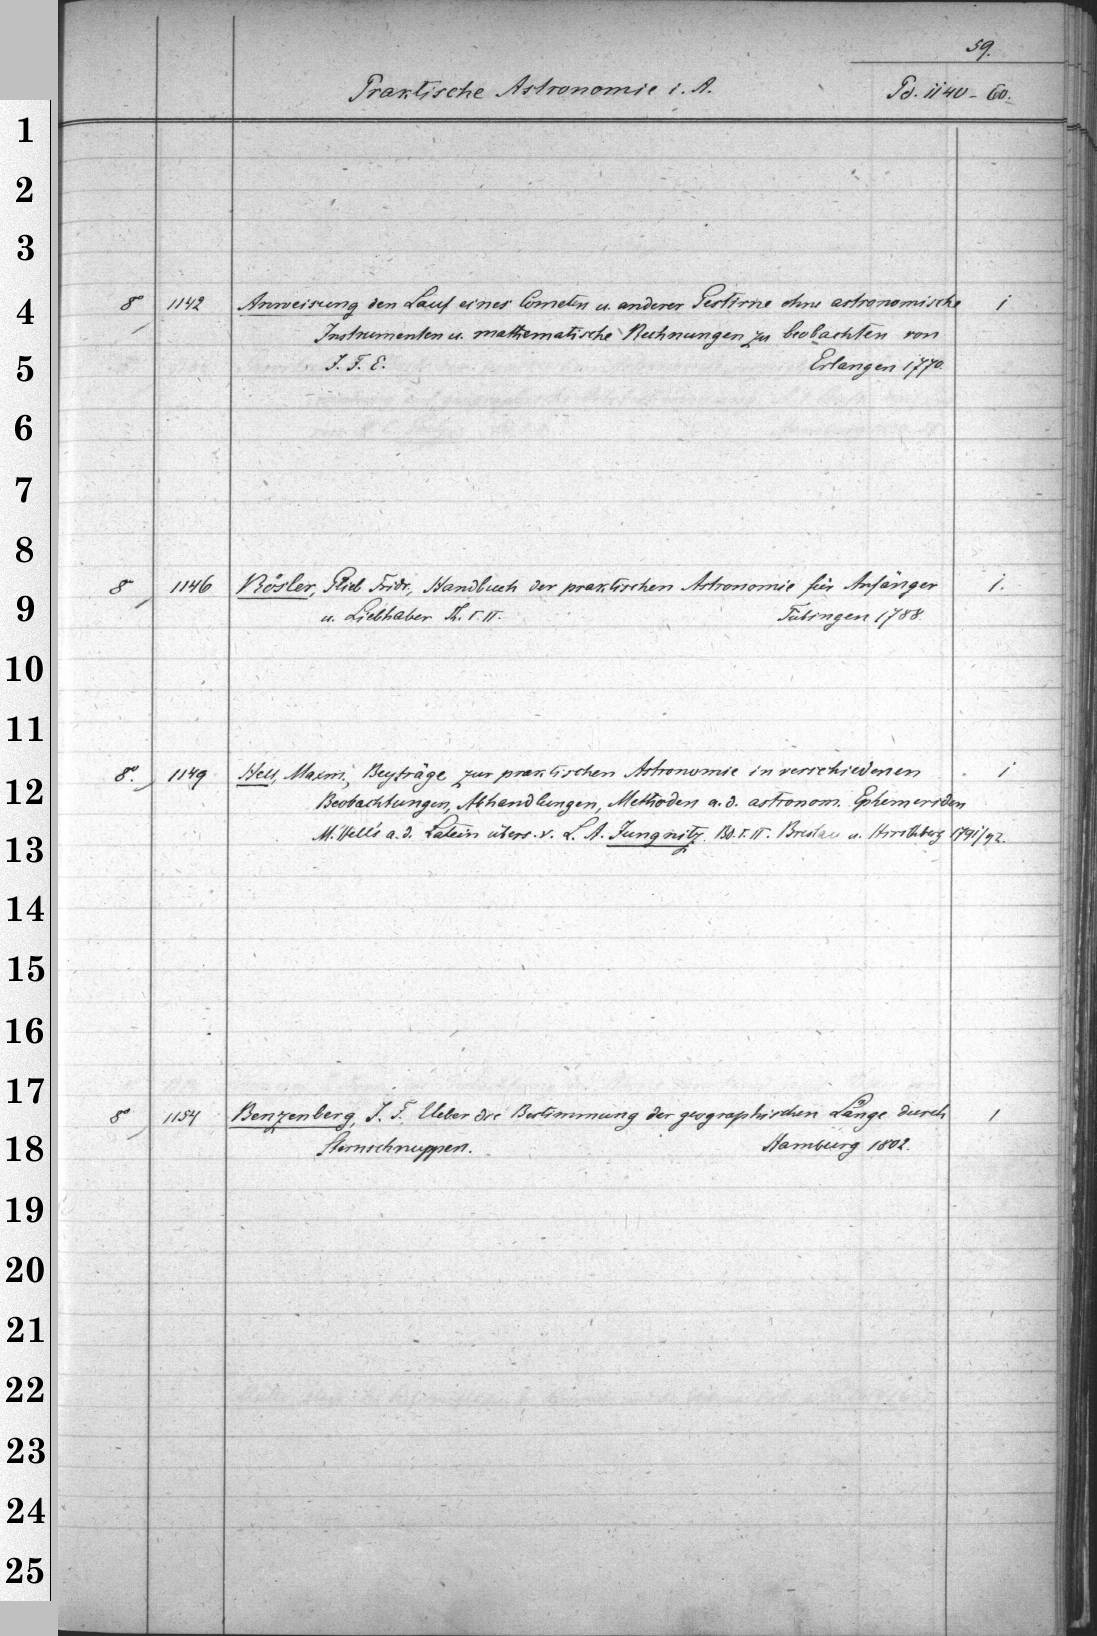 59.
Praktische Astronomie i. A. Pd. 1140-60.
1
2
3
4
5
6
7
8
9
10
11
12
13
14
15
16
17
18
19
20
21
22
23
24
25
8° 1142 Anweisung den Lauf eines Cometen u. anderer Gestirne ohne astronomische 1
Instrumenten u. mathematische Rechnungen zu beobachten von
J. F. E. Erlangen 1770.
8° 1146 Rösler, Glieb Fridr., Handbuch der praktischen Astronomie für Anfänger 1.
u. Liebhaber Th. I. II. Tübingen 1788.
8°. 1149 Hell, Maxim., Beyträge zur praktischen Astronomie in verschiedenen 1
Beobachtungen, Abhandlungen, Methoden a. d. astronom. Ephemeriden
M. Hell's a. d. Latein übers. v. L. A. Jungnitz. Bd. I. II. Breslau u. Hirschberg 1791/92.
8° 1154 Benzenberg, J. F. Ueber die Bestimmung der geographischen Länge durch 1
Sternschnuppen. Hamburg 1802.